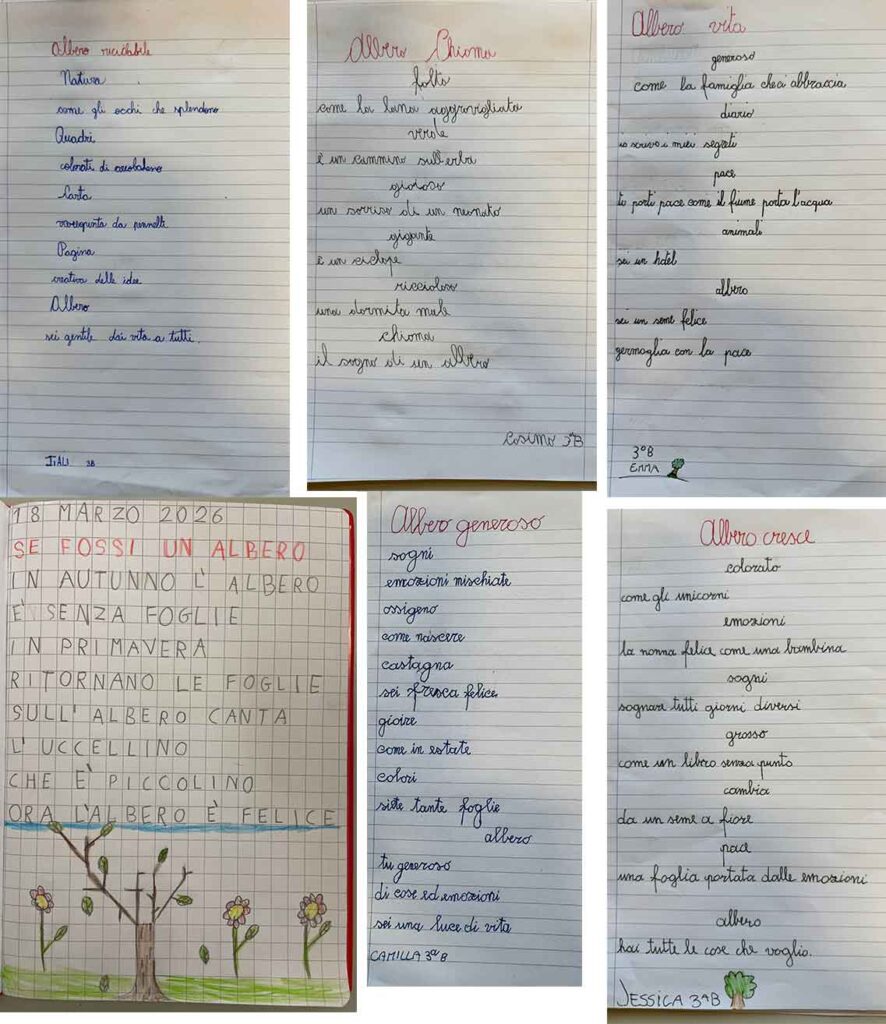 Albero riciclabile
Natura
come gli occhi che splendono
Quadri
colorati di arcobaleno
Carta
variopinta da pennelli
Pagina
creativa delle idee
Albero
sei gentile dai vita a tutti.
3B
Albero Chioma
folta
come la lana aggrovigliata
verde
è un cammino sull'erba
gioioso
un sorriso di un neonato
gigante
è un ciclope
riccioloso
una dormita male
chioma
il sogno di un albero
Cosimo 3ªB
Albero vita
generoso
come la famiglia che ci abbraccia
diario
io scrivo i miei segreti
pace
tu porti pace come il fiume porta l'acqua
animali
sei un hotel
albero
sei un seme felice
germoglia con la pace
3ºB
EMMA
18 MARZO 2026
SE FOSSI UN ALBERO
IN AUTUNNO L'ALBERO
E' SENZA FOGLIE
IN PRIMAVERA
RITORNANO LE FOGLIE
SULL'ALBERO CANTA
L'UCCELLINO
CHE È PICCOLINO
ORA L'ALBERO È FELICE
Albero generoso
sogni
emozioni mischiate
ossigeno
come nascere
castagna
sei fresca felice
gioire
come in estate
colori
siete tante foglie
albero
tu generoso
di cose ed emozioni
sei una luce di vita
CAMILLA 3ªB
Albero cresce
colorato
come gli unicorni
emozioni
la nonna felice come una bambina
sogni
sognare tutti giorni diversi
grosso
come un libero senza punto
cambia
da un seme a fiore
pace
una foglia portata dalle emozioni
albero
hai tutte le cose che voglio.
JESSICA 3ªB